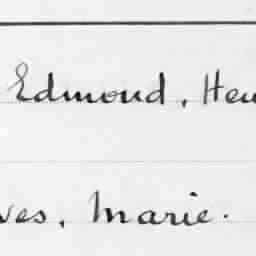 Edmond, Hen
ves, Marie.